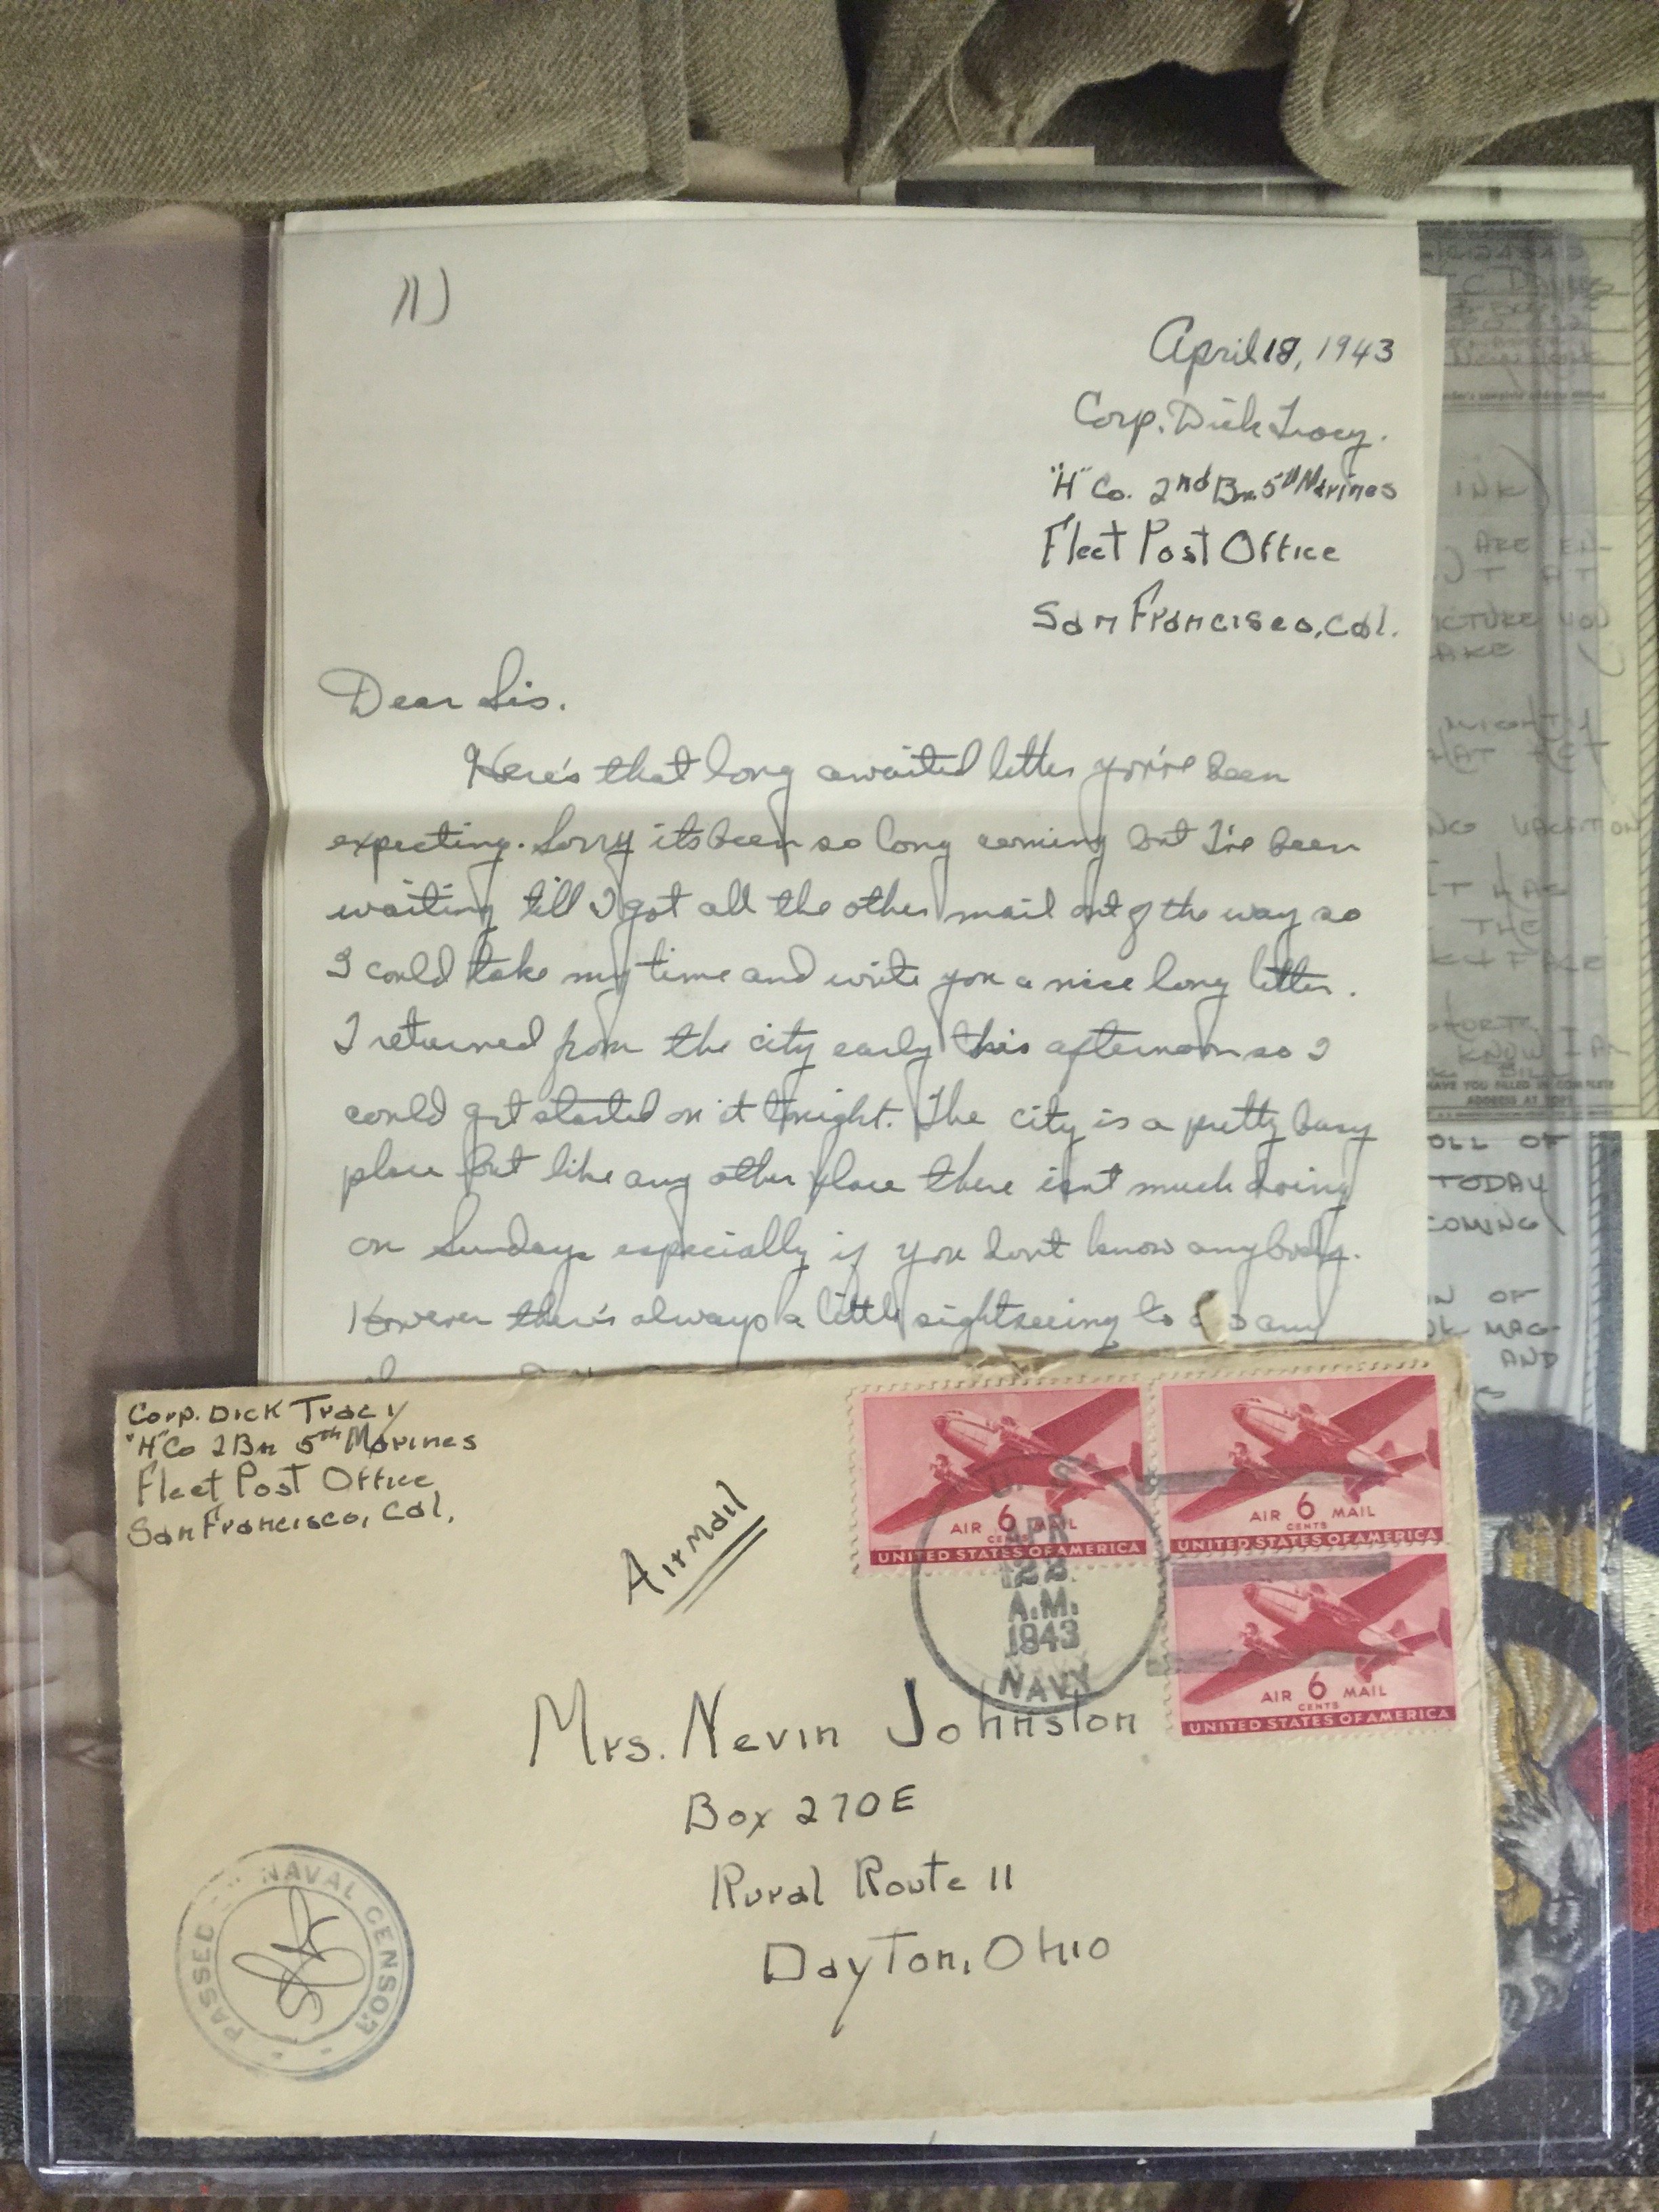 1)
April 18, 1943
Corp. Dick Tracy.
"H" Co. 2nd Bn. 5th Marines
Fleet Post Office
San Francisco, Cal.
Dear Sis.
Here's that long awaited letter you've been
expecting. Sorry its been so long coming but I've been
waiting till I got all the other mail out of the way so
I could take my time and write you a nice long letter.
I returned from the city early this afternoon so I
could get started on it tonight. The city is a pretty busy
place but like any other place there isnt much doing
on Sundays especially if you dont know anybody.
However there's always a little sightseeing to do any
Corp. Dick Tracy
"H" Co 2 Bn 5th Marines
Fleet Post Office
San Francisco, Cal.
Air Mail
AIR 6 MAIL
CENTS
UNITED STATES OF AMERICA
AIR 6 MAIL
CENTS
UNITED STATES OF AMERICA
AIR 6 MAIL
CENTS
UNITED STATES OF AMERICA
APR
22
A.M.
1943
NAVY
Mrs. Nevin Johnston
Box 270E
Rural Route 11
Dayton, Ohio
PASSED BY NAVAL CENSOR
INK)
ARE EN-
ICTURE YOU
AKE
MIGHTY
NG VACATION
IT HAS
THE
KNOW I AM
BILL
HAVE YOU FILLED IN COMPLETE
ADDRESS AT TOP?
OLL OF
TODAY
COMING
N OF
MAG-
AND